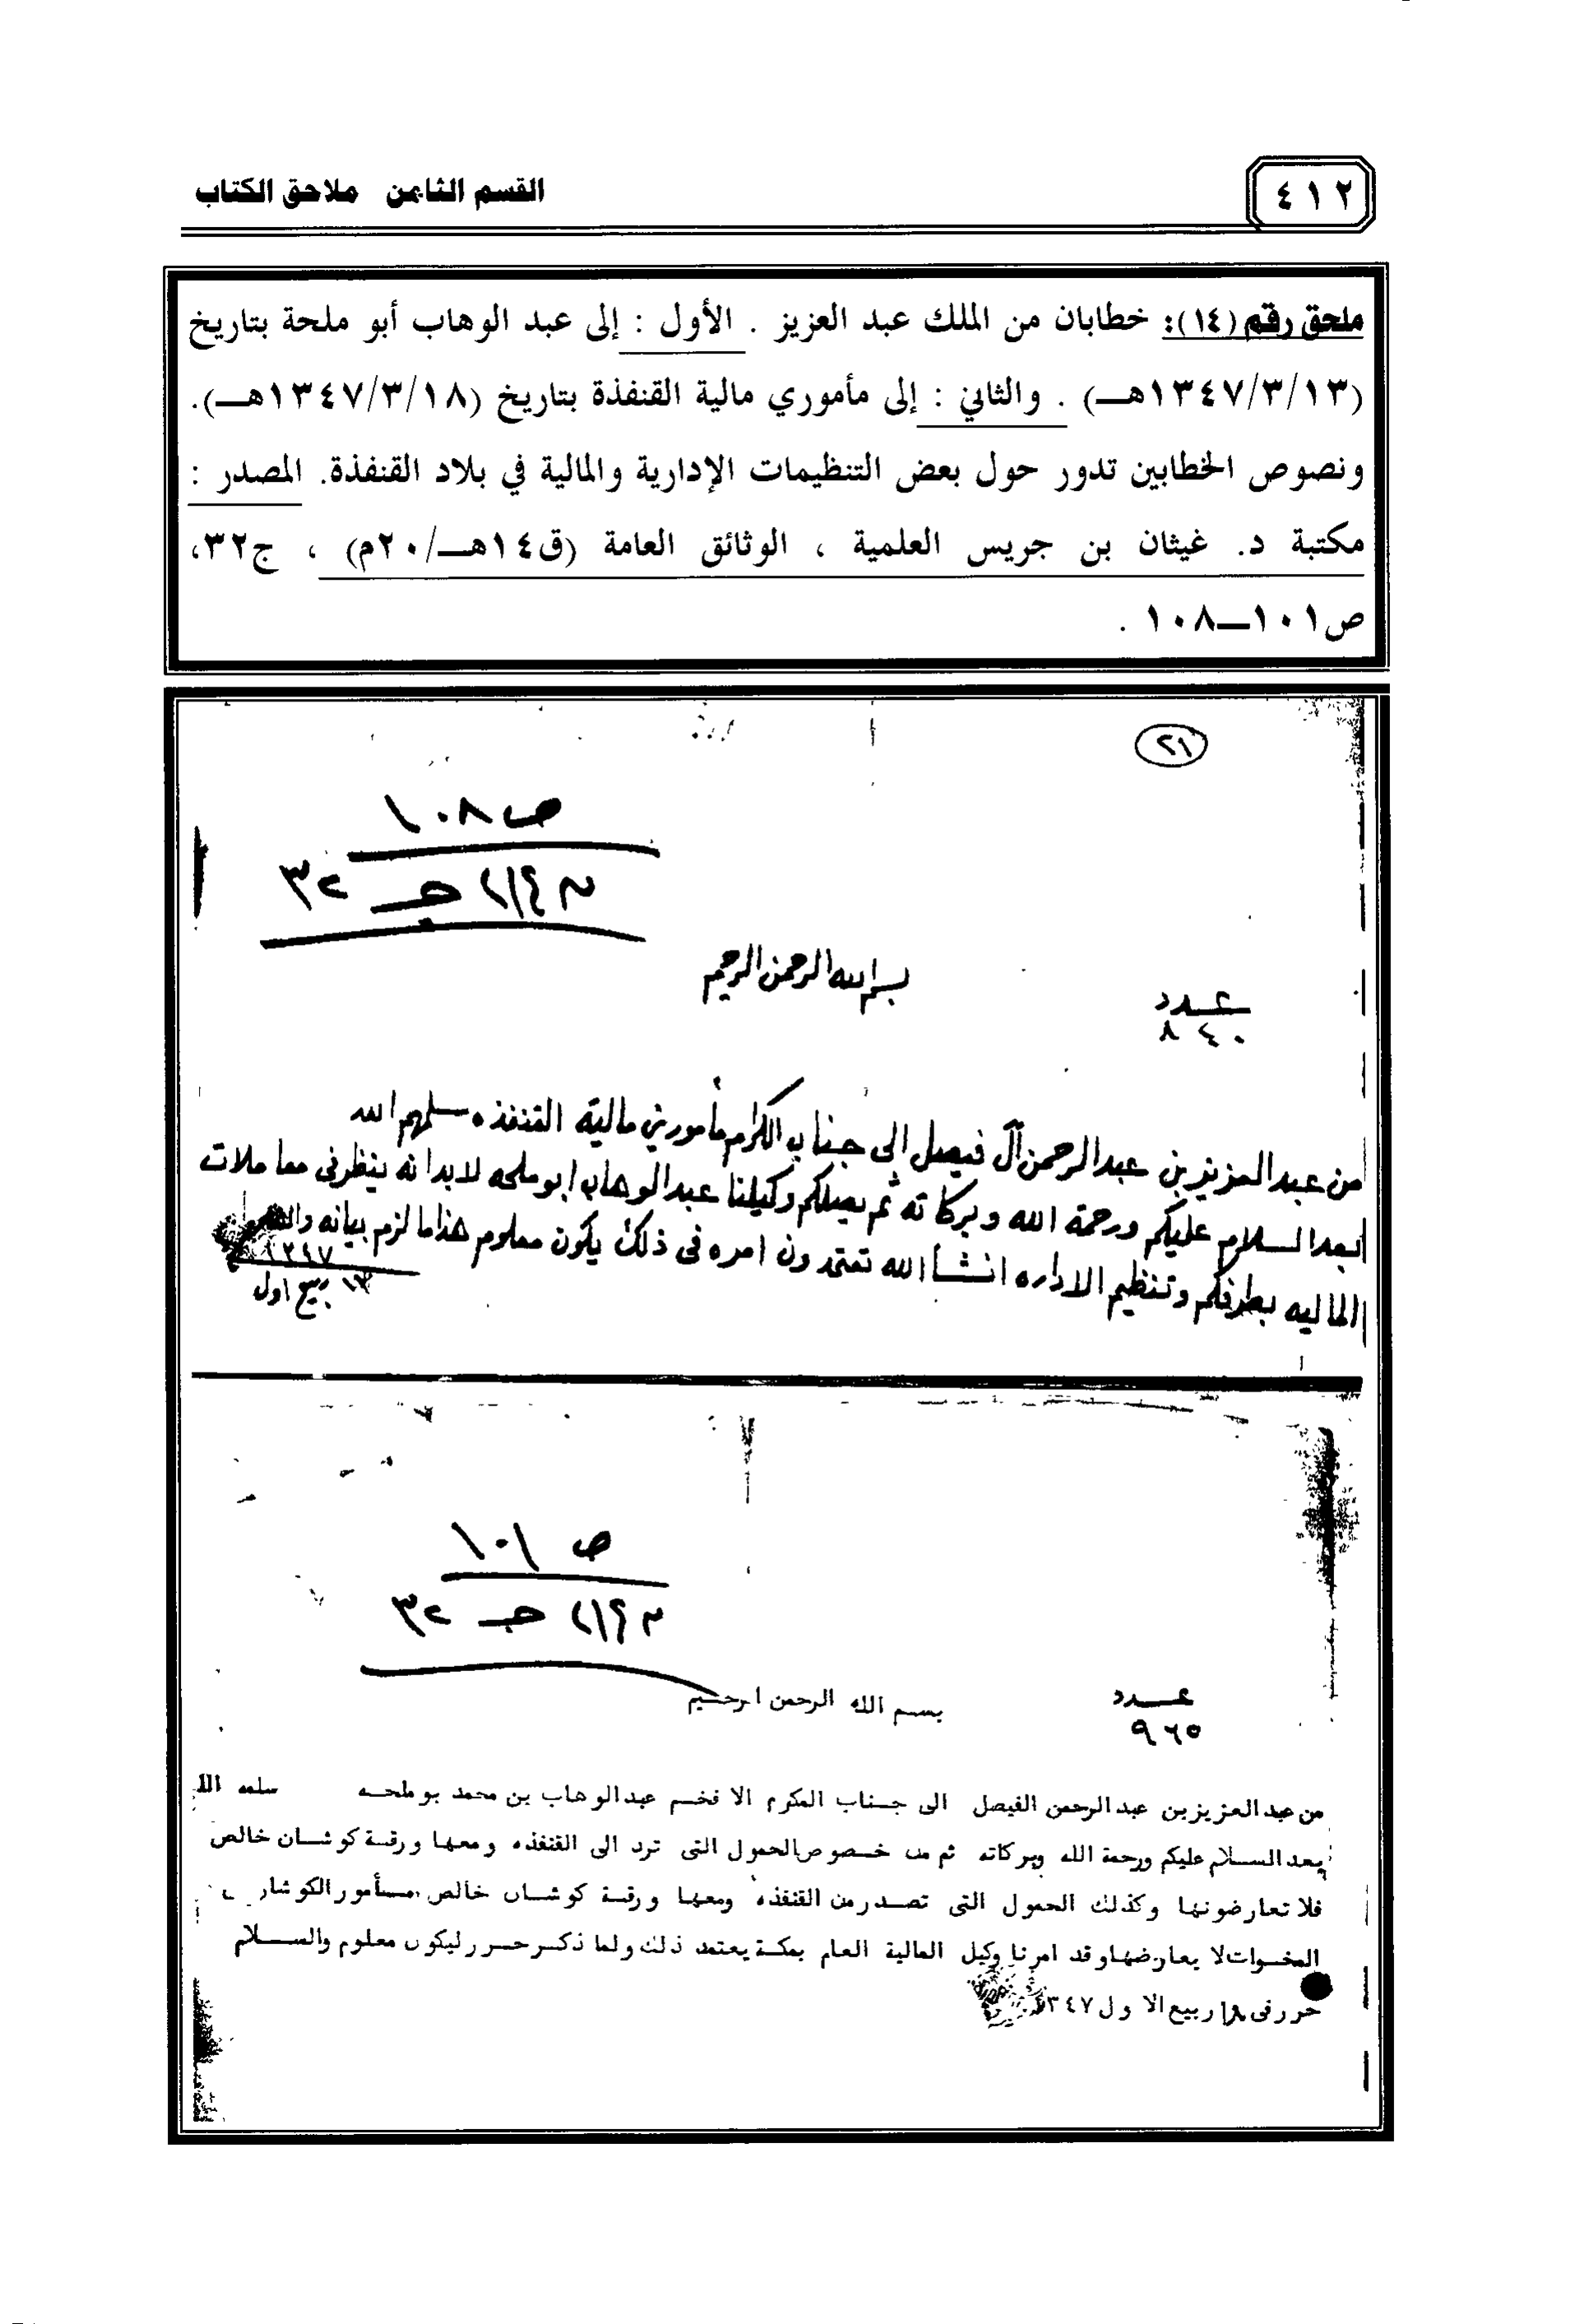 ٤١٢
القسم الثامن ملاحق الكتاب
ملحق رقم (١٤): خطابان من الملك عبد العزيز . الأول : إلى عبد الوهاب أبو ملحة بتاريخ
(١٣٤٧/٣/١٣هـ) . والثاني : إلى مأموري مالية القنفذة بتاريخ (١٣٤٧/٣/١٨هـ).
ونصوص الخطابين تدور حول بعض التنظيمات الإدارية والمالية في بلاد القنفذة. المصدر :
مكتبة د. غيثان بن جريس العلمية ، الوثائق العامة (ق١٤هـ/٢٠م) ، ج٣٢،
ص١٠١ــ١٠٨ .
٢١
ص ١٠٨
جـ ٣٢
بسم الله الرحمن الرحيم
عدد
٨٤٠
من عبد العزيز بن عبد الرحمن آل فيصل الى جناب الكرام مأمورين مالية القنفذه سلمهم الله
بعد السلام عليكم ورحمة الله وبركاته ثم يصلكم وكيلنا عبد الوهاب ابو ملحه لابد انه ينظر في معاملات
الماليه بطرفكم وتنظيم الاداره انشأ الله تعتمدون امره في ذلك يكون معلوم هذا ما لزم بيانه
١٣٤٧
١٣ ربيع اول
ص ١٠١
جـ ٣٢
بسم الله الرحمن الرحيم
عدد
٩٦٥
من عبد العزيز بن عبد الرحمن الفيصل الى جناب المكرم الافخم عبد الوهاب بن محمد بو ملحه سلمه الله
بعد السلام عليكم ورحمة الله وبركاته ثم من خصوص الحمول التى ترد الى القنفذه ومعها ورقة كوشان خالص
فلا تعارضونها وكذلك الحمول التى تصدر من القنفذه ومعها ورقة كوشان خالص مأمور الكوشان
لا يعارضها وقد امرنا وكيل المالية العام بمكة يعتمد ذلك ولما ذكر حرر ليكون معلوم والسلام
حرر فى ١٨ ربيع الاول ١٣٤٧